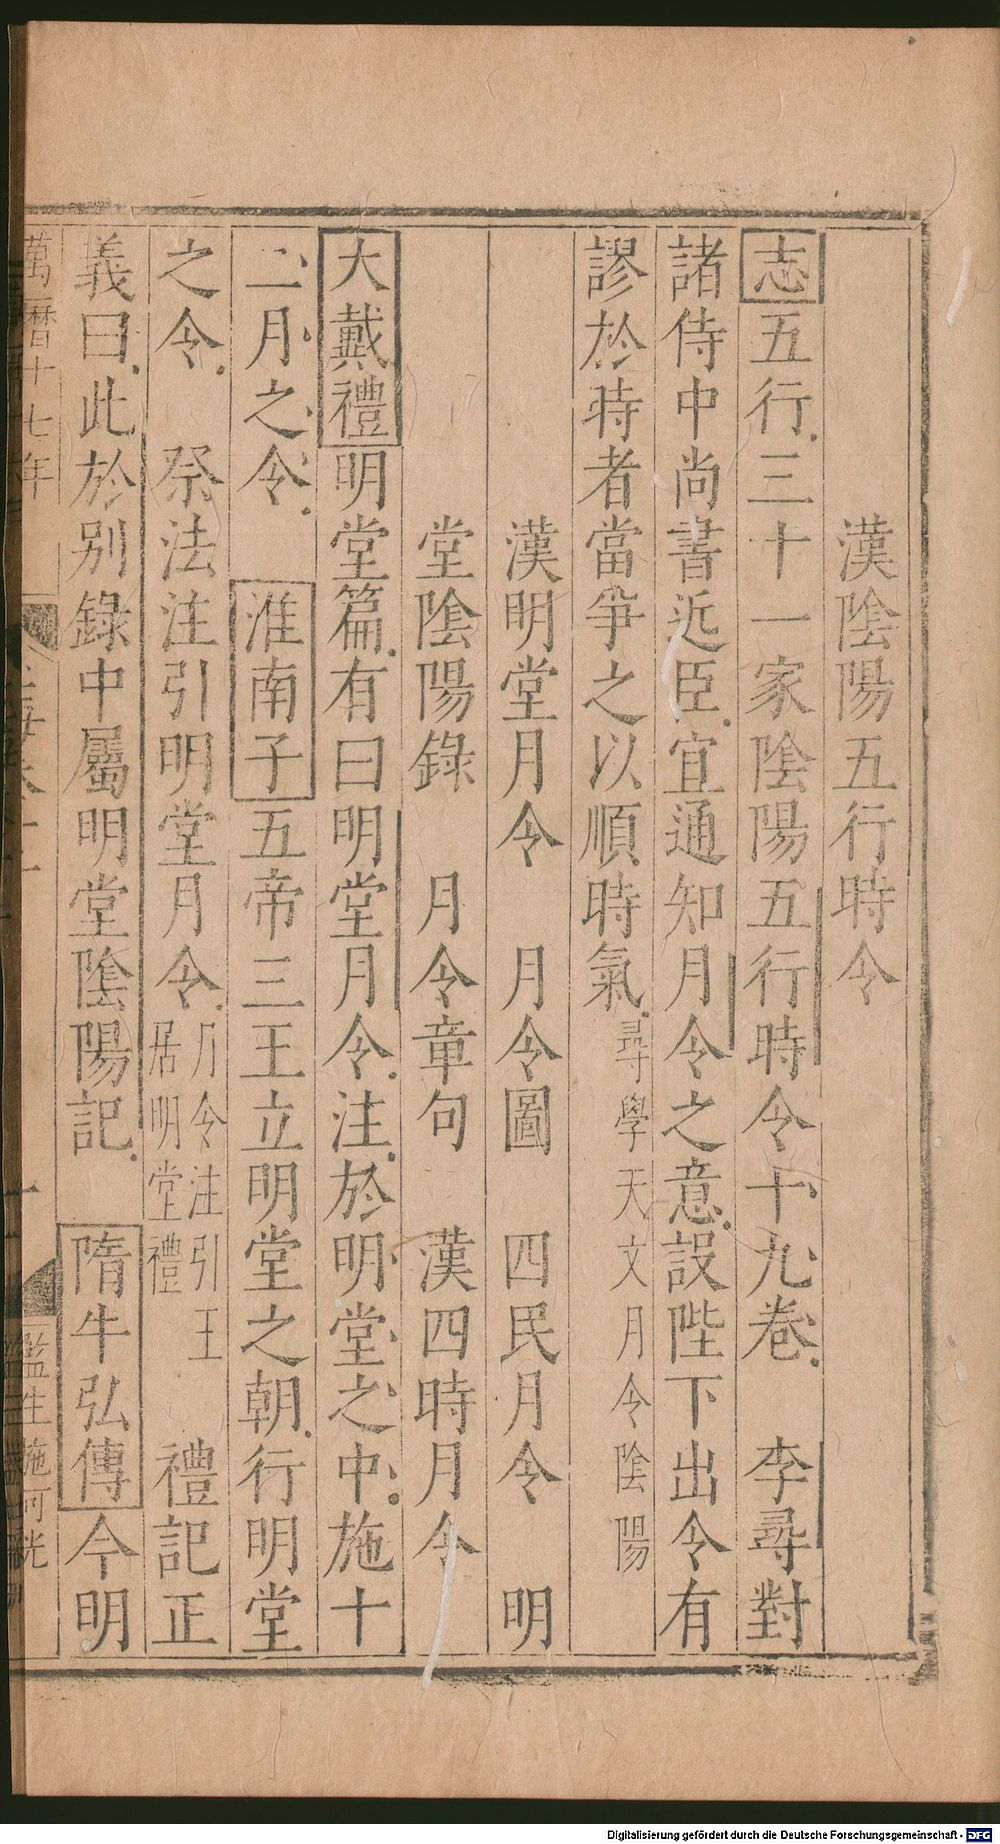 漢陰陽五行時令
志五行三十一家陰陽五行時令十九卷　李尋對
諸侍中尚書近臣宜通知月令之意設陛下出令有
謬於時者當爭之以順時氣尋學天文月令陰陽
漢明堂月令　月令圖　四民月令　明
堂陰陽錄　月令章句　漢四時月令
大戴禮明堂篇有曰明堂月令注於明堂之中施十
二月之令　淮南子五帝三王立明堂之朝行明堂
之令　祭法注引明堂月令月令注引王居明堂禮　禮記正
義曰此於別錄中屬明堂陰陽記　隋牛弘傳今明
萬曆十七年
監生施可光
Digitalisierung gefördert durch die Deutsche Forschungsgemeinschaft - DFG